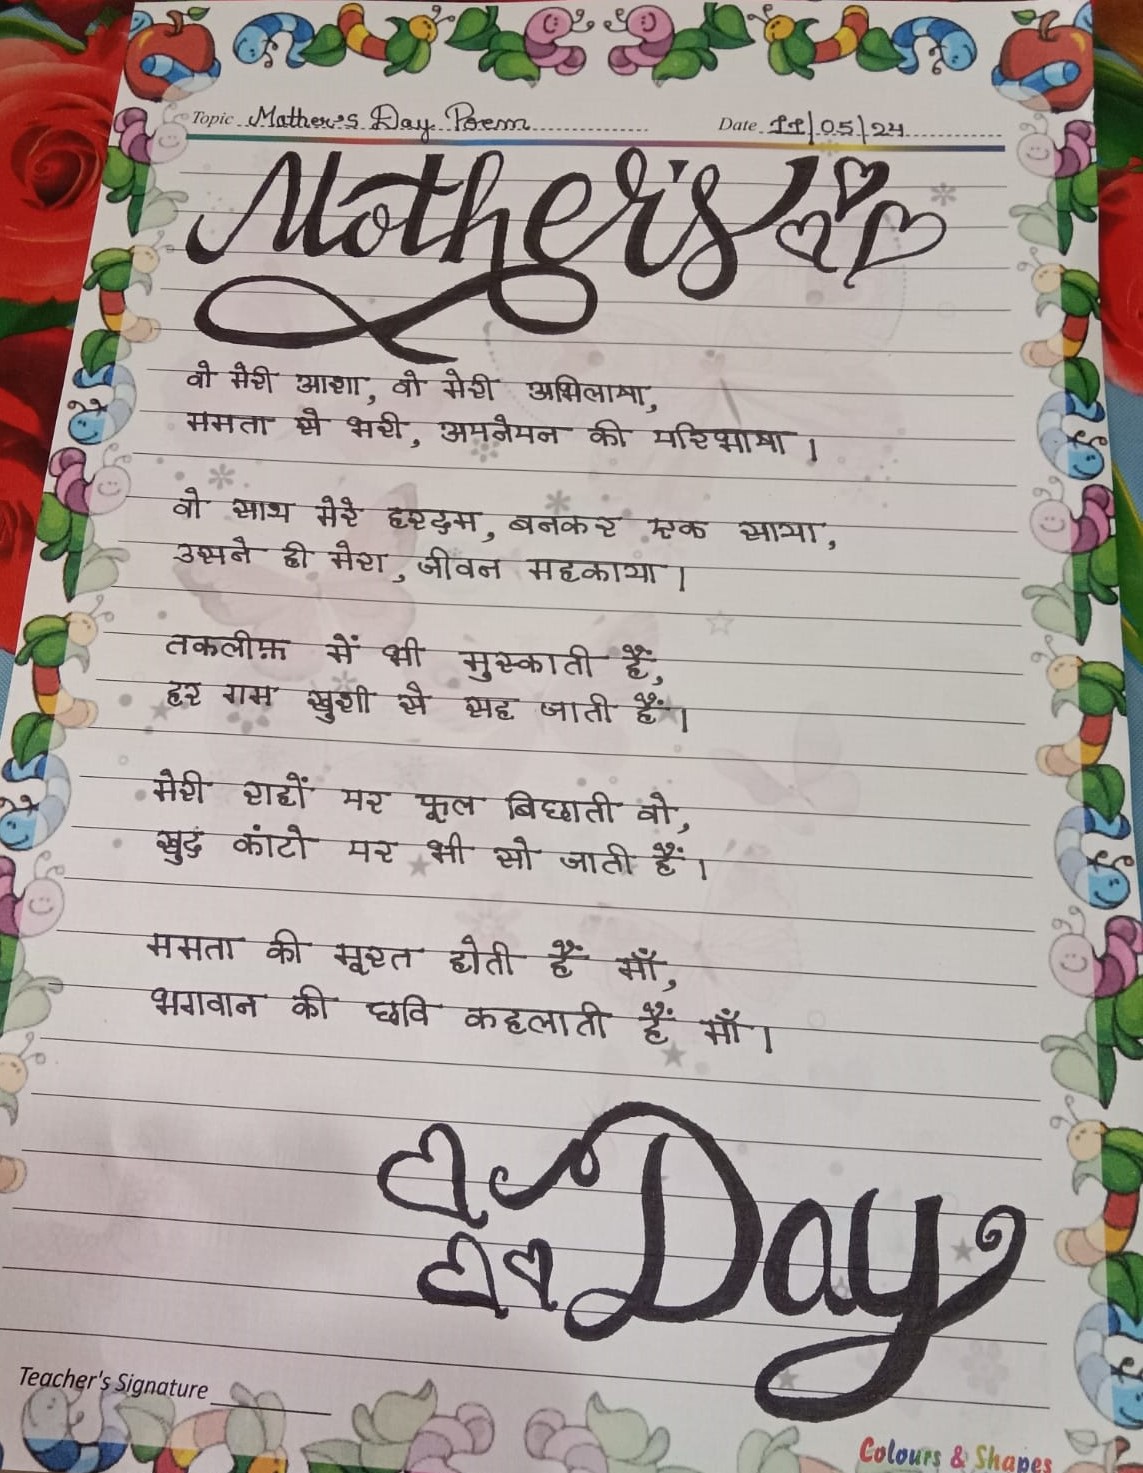 Topic Mother's Day Poem Date 11/05/24
Mother's
वो मेरी आशा, वो मेरी अभिलाषा,
ममता से भरी, अपनेपन की परिभाषा।
वो साथ मेरे हरदम, बनकर एक साया,
उसने ही मेरा, जीवन महकाया।
तकलीफ़ में भी मुस्काती हैं,
हर गम खुशी से सह जाती हैं।
मेरी राहों पर फूल बिछाती वो,
खुद कांटो पर भी सो जाती हैं।
ममता की मूरत होती हैं माँ,
भगवान की छवि कहलाती हैं माँ।
Day
Teacher's Signature
Colours & Shapes